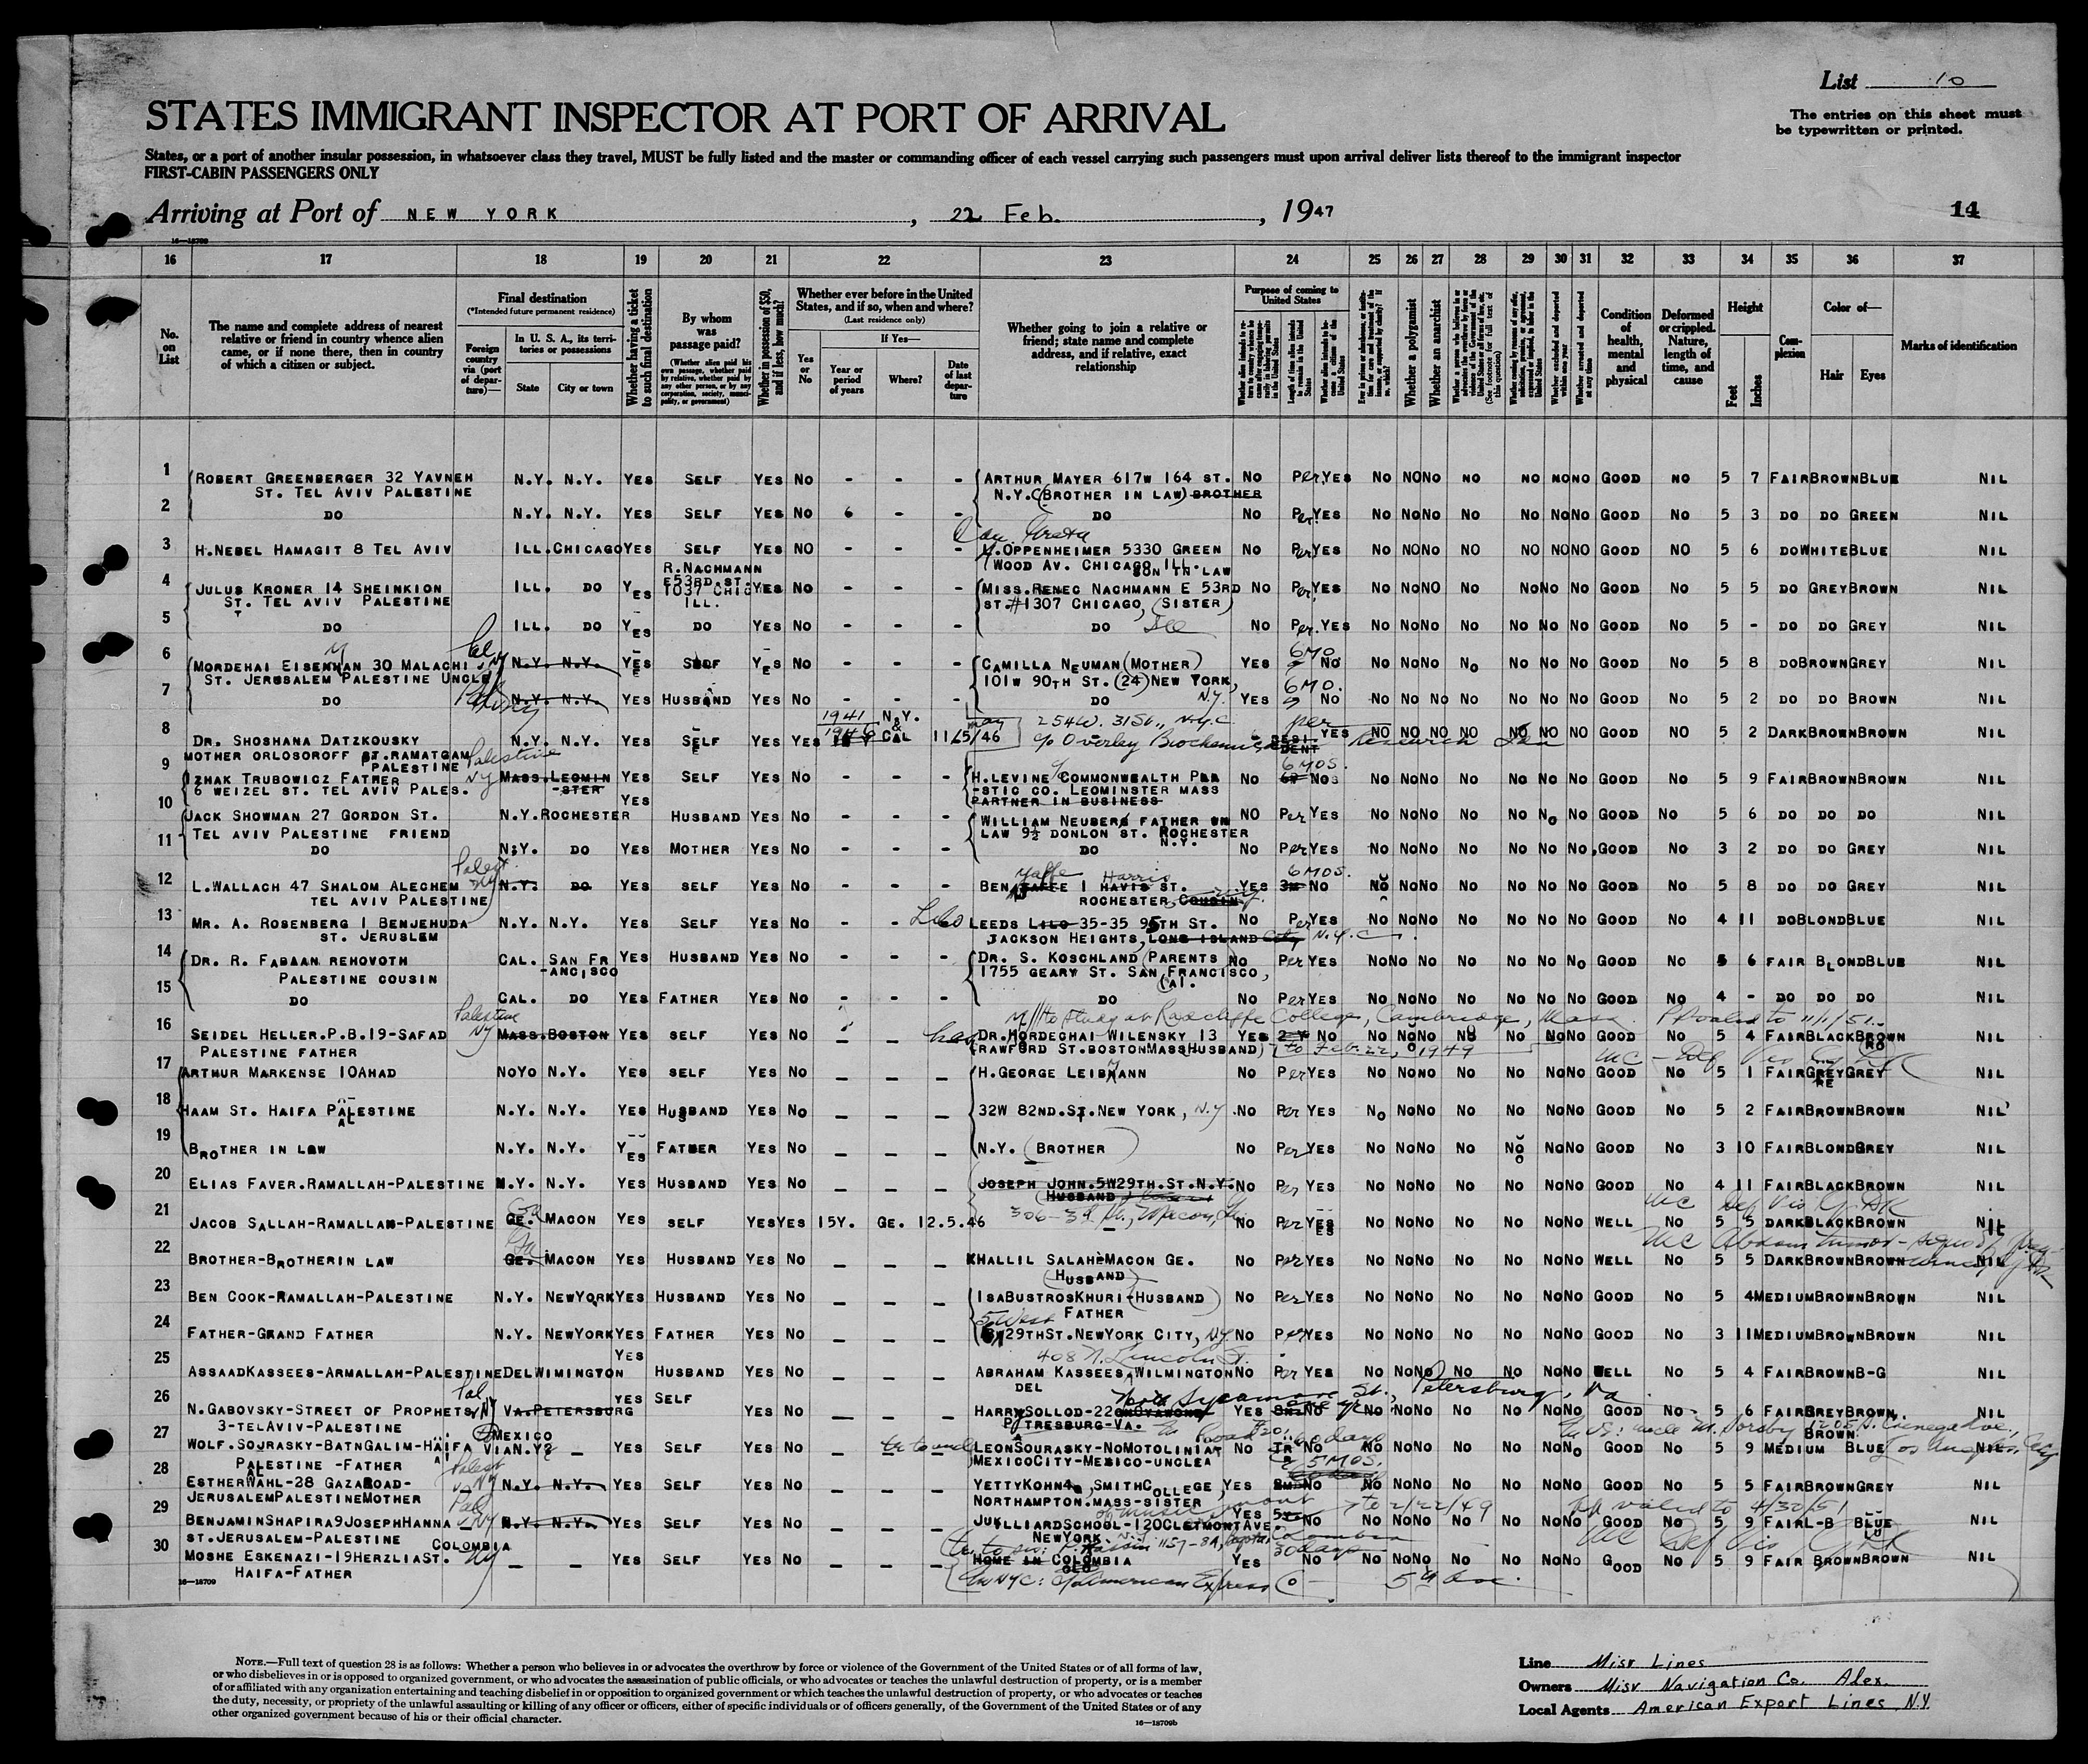 List 10
The entries on this sheet must
be typewritten or printed.
STATES IMMIGRANT INSPECTOR AT PORT OF ARRIVAL
States, or a port of another insular possession, in whatsoever class they travel, MUST be fully listed and the master or commanding officer of each vessel carrying such passengers must upon arrival deliver lists thereof to the immigrant inspector
FIRST-CABIN PASSENGERS ONLY
Arriving at Port of NEW YORK , 22 Feb. , 1947
14
16—18709
16 17 18 19 20 21 22 23 24 25 26 27 28 29 30 31 32 33 34 35 36 37
No. on List
The name and complete address of nearest relative or friend in country whence alien came, or if none there, then in country of which a citizen or subject.
Final destination
(*Intended future permanent residence)
Foreign country via (port of departure)—
In U. S. A., its territories or possessions
State
City or town
Whether having a ticket to such final destination
By whom was passage paid?
(Whether alien paid his own passage, whether paid by relative, whether paid by any other person, or by any corporation, society, municipality, or government)
Whether in possession of $50, and if less, how much?
Whether ever before in the United States, and if so, when and where?
(Last residence only)
Yes or No
If Yes—
Year or period of years
Where?
Date of last departure
Whether going to join a relative or friend; state name and complete address, and if relative, exact relationship
Purpose of coming to United States
Whether a polygamist
Whether an anarchist
Condition of health, mental and physical
Deformed or crippled. Nature, length of time, and cause
Height
Feet
Inches
Complexion
Color of—
Hair
Eyes
Marks of identification
1 ROBERT GREENBERGER 32 YAVNEH N.Y. N.Y. YES SELF YES NO - - - ARTHUR MAYER 617W 164 ST. NO Per YES NO NO NO NO NO NO NO GOOD NO 5 7 FAIR BROWN BLUE NIL
ST. TEL AVIV PALESTINE N.Y.C (BROTHER IN LAW) BROTHER
2 DO N.Y. N.Y. YES SELF YES NO 6 - - DO NO Per YES NO NO NO NO NO NO NO GOOD NO 5 3 DO DO GREEN NIL
3 H.NEBEL HAMAGIT 8 TEL AVIV ILL. CHICAGO YES SELF YES NO - - - OPPENHEIMER 5330 GREEN NO Per YES NO NO NO NO NO NO NO GOOD NO 5 6 DO WHITE BLUE NIL
WOOD AV. CHICAGO ILL. SON IN LAW
R.NACHMANN
4 JULUS KRONER 14 SHEINKION ILL. DO YES E53RD ST. 1037 CHIG ILL. YES NO - - - MISS.RENEC NACHMANN E 53RD NO Per YES NO NO NO NO NO NO NO GOOD NO 5 5 DO GREY BROWN NIL
ST. TEL AVIV PALESTINE ST.#1307 CHICAGO, (SISTER)
5 DO ILL. DO YES DO YES NO - - - DO Ill NO Per. YES NO NO NO NO NO NO NO GOOD NO 5 - DO DO GREY NIL
6 MORDEHAI EISENMAN 30 MALACHI N.Y. N.Y. YES SELF YES NO - - - CAMILLA NEUMAN (MOTHER) YES 6 MO NO NO NO NO NO NO NO NO GOOD NO 5 8 DO BROWN GREY NIL
ST. JERUSALEM PALESTINE UNCLE 101W 90TH ST. (24) NEW YORK, N.Y.
7 DO N.Y. N.Y. YES HUSBAND YES NO - - - DO YES 6 MO. NO NO NO NO NO NO NO NO GOOD NO 5 2 DO DO BROWN NIL
1941 N.Y. & May 254 W. 31 St., N.Y.C. per
8 DR. SHOSHANA DATZKOUSKY N.Y. N.Y. YES SELF YES YES 1946 CAL 11/5/46 c/o Overley Biochemical Research RESIDENT YES NO NO NO NO NO NO NO GOOD NO 5 2 DARK BROWN BROWN NIL
MOTHER ORLOSOROFF ST. RAMATGAM PALESTINE
9 IZHAK TRUBOWICZ FATHER Palestine NY MASS. LEOMINSTER YES SELF YES NO - - - H.LEVINE c/o COMMONWEALTH PLASTIC CO. LEOMINSTER MASS NO 6 MOS. NO NO NO NO NO NO NO NO GOOD NO 5 9 FAIR BROWN BROWN NIL
6 WEIZEL ST. TEL AVIV PALES. PARTNER IN BUSINESS
10 JACK SHOWMAN 27 GORDON ST. N.Y. ROCHESTER YES HUSBAND YES NO - - - WILLIAM NEUBERG FATHER IN NO Per YES NO NO NO NO NO NO NO GOOD NO 5 6 DO DO DO NIL
TEL AVIV PALESTINE FRIEND LAW 9½ DONLON ST. ROCHESTER N.Y.
11 DO N.Y. DO YES MOTHER YES NO - - - DO NO Per YES NO NO NO NO NO NO NO GOOD NO 3 2 DO DO GREY NIL
12 L.WALLACH 47 SHALOM ALECHEM N.Y. DO YES SELF YES NO - - - BEN Yaffe 1 Harris ST. YES 6 MOS. NO NO NO NO NO NO NO NO GOOD NO 5 8 DO DO GREY NIL
TEL AVIV PALESTINE ROCHESTER COUSIN
13 MR. A. ROSENBERG 1 BENJEHUDA N.Y. N.Y. YES SELF YES NO - - Lilo LEEDS LILO 35-35 95TH ST. NO Per YES NO NO NO NO NO NO NO GOOD NO 4 11 DO BLOND BLUE NIL
ST. JERUSLEM JACKSON HEIGHTS, LONG ISLAND City N.Y.C.
14 DR. R. FABIAN REHOVOTH CAL. SAN FRANCISCO YES HUSBAND YES NO - - - DR. S. KOSCHLAND (PARENTS NO Per YES NO NO NO NO NO NO NO GOOD NO 5 6 FAIR BLOND BLUE NIL
PALESTINE COUSIN 1755 GEARY ST. SAN FRANCISCO, Cal.
15 DO CAL. DO YES FATHER YES NO - - - DO NO Per YES NO NO NO NO NO NO NO GOOD NO 4 - DO DO DO NIL
to study at Radcliffe College, Cambridge, Mass. PP valid to 11/1/51
16 SEIDEL HELLER.P.B.19-SAFAD Palestine NY MASS. BOSTON YES SELF YES NO DR. MORDECHAI WILENSKY 13 YES 2 Y NO NO NO NO NO NO NO NO GOOD NO 5 4 FAIR BLACK BROWN NIL
PALESTINE FATHER CRAWFORD ST. BOSTON MASS HUSBAND) to Feb. 22, 1949
17 ARTHUR MARKENSE 10AHAD NOYO N.Y. YES SELF YES NO H.GEORGE LEIBMANN NO Per YES NO NO NO NO NO NO NO GOOD NO 5 1 FAIR GREY GREY NIL
18 HAAM ST. HAIFA PALESTINE N.Y. N.Y. YES HUSBAND YES NO 32W 82ND.ST.NEW YORK, N.Y. NO Per YES NO NO NO NO NO NO NO GOOD NO 5 2 FAIR BROWN BROWN NIL
19 BROTHER IN LAW N.Y. N.Y. YES FATHER YES NO N.Y. (BROTHER) NO Per YES NO NO NO NO NO NO NO GOOD NO 3 10 FAIR BLOND GREY NIL
20 ELIAS FAVER.RAMALLAH-PALESTINE N.Y. N.Y. YES HUSBAND YES NO JOSEPH JOHN.5W29TH.ST.N.Y. NO Per YES NO NO NO NO NO NO NO GOOD NO 4 11 FAIR BLACK BROWN NIL
HUSBAND
21 JACOB SALLAH-RAMALLAH-PALESTINE GE. MACON YES SELF YES YES 15Y. GE. 12.5.46 306-3d St., Macon, Ga. NO Per YES NO NO NO NO NO NO NO WELL NO 5 5 DARK BLACK BROWN NIL
22 BROTHER-BROTHERIN LAW GE. MACON YES HUSBAND YES NO KHALLIL SALAH-MACON GE. NO Per YES NO NO NO NO NO NO NO WELL NO 5 5 DARK BROWN BROWN NIL
(HUSBAND)
23 BEN COOK-RAMALLAH-PALESTINE N.Y. NEWYORK YES HUSBAND YES NO ISABUSTROSKHURI (HUSBAND) NO Per YES NO NO NO NO NO NO NO GOOD NO 5 4 MEDIUM BROWN BROWN NIL
FATHER
24 FATHER-GRAND FATHER N.Y. NEWYORK YES FATHER YES NO 5 West 29THST.NEWYORK CITY, NY NO Per YES NO NO NO NO NO NO NO GOOD NO 3 11 MEDIUM BROWN BROWN NIL
408 N. Lincoln St.
25 ASSAADKASSEES-ARMALLAH-PALESTINE DEL WIMINGTON YES HUSBAND YES NO ABRAHAM KASSEES, WILMINGTON NO Per YES NO NO NO NO NO NO NO WELL NO 5 4 FAIR BROWN B-G NIL
DEL
Sycamore St., Petersburg, Va
26 N.GABOVSKY-STREET OF PROPHETS VA. PETERSBURG YES SELF YES NO HARRY SOLLOD-22 YES NO NO NO NO NO NO NO NO GOOD NO 5 6 FAIR GREY BROWN NIL
3-TELAVIV-PALESTINE PTRESBURG-VA.
27 WOLF.SOJRASKY-BATNGALIM-HAIFA MEXICO VIA N.Y. - YES SELF YES NO LEONSOURASKY-NOMOTOLINIA NO TR 60 days NO NO NO NO NO NO NO GOOD NO 5 9 MEDIUM BROWN BLUE NIL
PALESTINE -FATHER MEXICOCITY-MEXICO-UNCLE
28 ESTHERWAHL-28 GAZAROAD- N.Y. N.Y. YES SELF YES NO YETTYKOHN, SMITHCOLLEGE, YES 5 MOS. NO NO NO NO NO NO NO NO GOOD NO 5 5 FAIR BROWN GREY NIL
JERUSALEMPALESTINEMOTHER NORTHAMPTON.MASS-SISTER
29 BENJAMINSHAPIRA9JOSEPHHANNA N.Y. N.Y. YES SELF YES NO JUILLIARDSCHOOL-120CLETMONTAVE YES to 2/22/49 NO NO NO NO NO NO NO NO GOOD NO 5 9 FAIR L-B BLUE NIL
ST.JERUSALEM-PALESTINE NEWYORK valid to 4/30/51
30 MOSHE ESKENAZI-19HERZLIAST. COLOMBIA NY - YES SELF YES NO HOME IN COLOMBIA YES 30 days NO NO NO NO NO NO NO GOOD NO 5 9 FAIR BROWN BROWN NIL
HAIFA-FATHER In NYC: c/o American Express Co - 5th Ave.
16—18709
NOTE.—Full text of question 28 is as follows: Whether a person who believes in or advocates the overthrow by force or violence of the Government of the United States or of all forms of law,
or who disbelieves in or is opposed to organized government, or who advocates the assassination of public officials, or who advocates or teaches the unlawful destruction of property, or is a member
of or affiliated with any organization entertaining and teaching disbelief in or opposition to organized government or which teaches the unlawful destruction of property, or who advocates or teaches
the duty, necessity, or propriety of the unlawful assaulting or killing of any officer or officers, either of specific individuals or of officers generally, of the Government of the United States or of any
other organized government because of his or their official character.
16—18709b
Line Misr Lines
Owners Misr Navigation Co. Alex.
Local Agents American Export Lines, N.Y.